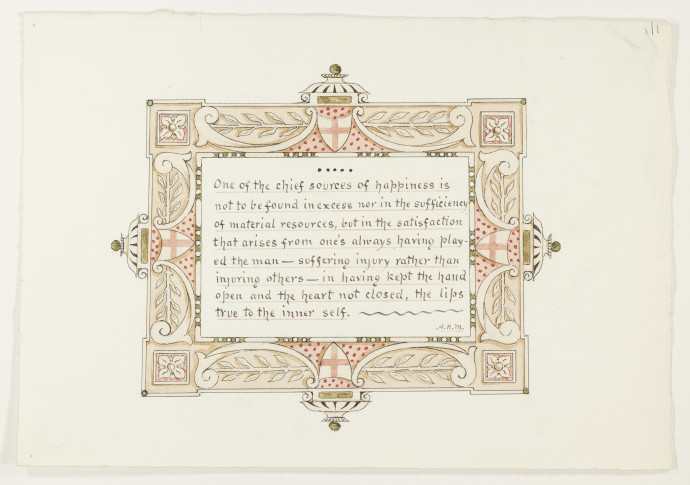 One of the chief sources of happiness is
not to be found in excess nor in the sufficiency
of material resources, but in the satisfaction
that arises from one's always having play-
ed the man — suffering injury rather than
injuring others — in having kept the hand
open and the heart not closed, the lips
true to the inner self.